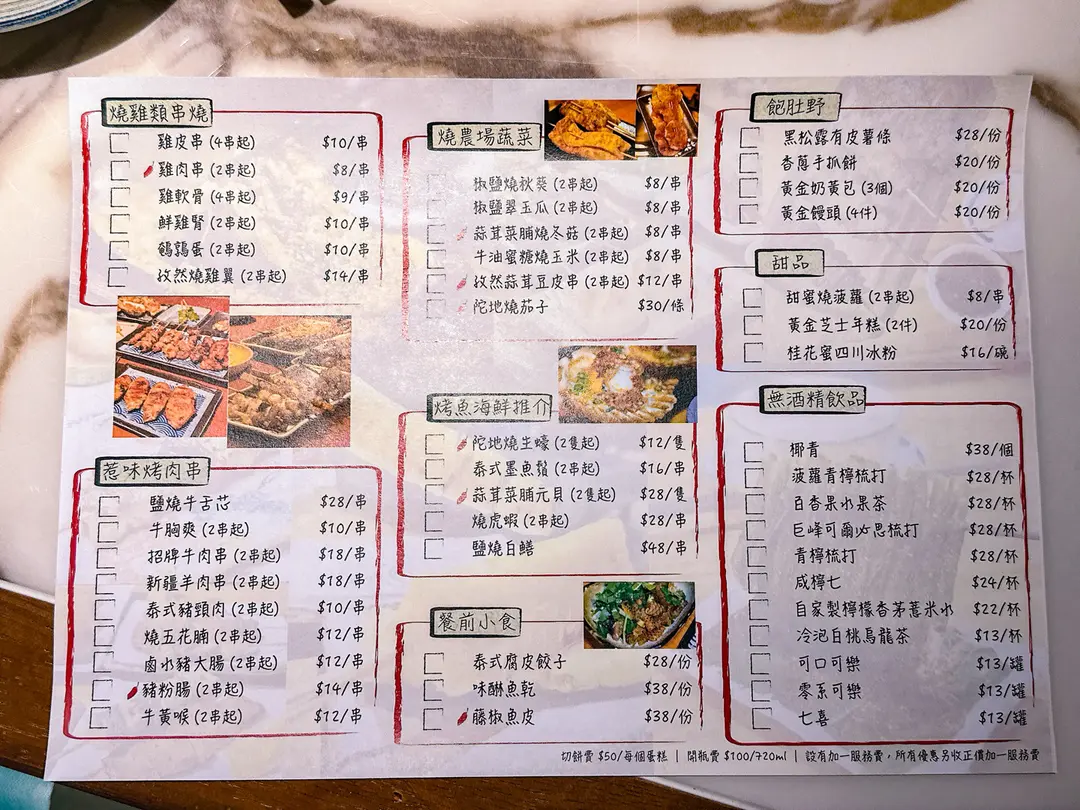 燒雞類串燒
雞皮串 (4串起) $10/串
雞肉串 (2串起) $8/串
雞軟骨 (4串起) $9/串
鮮雞腎 (2串起) $10/串
鵪鶉蛋 (2串起) $10/串
孜然燒雞翼 (2串起) $14/串
惹味烤肉串
鹽燒牛舌芯 $28/串
牛胸爽 (2串起) $10/串
招牌牛肉串 (2串起) $18/串
新疆羊肉串 (2串起) $18/串
泰式豬頸肉 (2串起) $10/串
燒五花腩 (2串起) $12/串
鹵水豬大腸 (2串起) $12/串
豬粉腸 (2串起) $14/串
牛黃喉 (2串起) $12/串
燒農場蔬菜
椒鹽燒秋葵 (2串起) $8/串
椒鹽翠玉瓜 (2串起) $8/串
蒜茸菜脯燒冬菇 (2串起) $8/串
牛油蜜糖燒玉米 (2串起) $8/串
孜然蒜茸豆皮串 (2串起) $12/串
陀地燒茄子 $30/條
烤魚海鮮推介
陀地燒生蠔 (2隻起) $12/隻
泰式墨魚鬚 (2串起) $16/串
蒜茸菜脯元貝 (2隻起) $28/隻
燒虎蝦 (2串起) $28/串
鹽燒白鱔 $48/串
餐前小食
泰式腐皮餃子 $28/份
味醂魚乾 $38/份
藤椒魚皮 $38/份
飽肚野
黑松露有皮薯條 $28/份
香蔥手抓餅 $20/份
黃金奶黃包 (3個) $20/份
黃金饅頭 (4件) $20/份
甜品
甜蜜燒菠蘿 (2串起) $8/串
黃金芝士年糕 (2件) $20/份
桂花蜜四川冰粉 $16/碗
無酒精飲品
椰青 $38/個
菠蘿青檸梳打 $28/杯
百香果水果茶 $28/杯
巨峰可爾必思梳打 $28/杯
青檸梳打 $28/杯
咸檸七 $24/杯
自家製檸檬香茅薏米水 $22/杯
冷泡白桃烏龍茶 $13/杯
可口可樂 $13/罐
零系可樂 $13/罐
七喜 $13/罐
切餅費 $50/每個蛋糕 | 開瓶費 $100/720ml | 設有加一服務費，所有優惠另收正價加一服務費